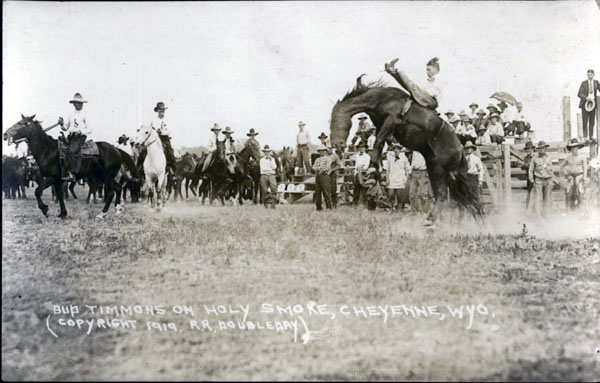 BUD TIMMONS ON HOLY SMOKE, CHEYENNE, WYO.
(COPYRIGHT 1919. R.R. DOUBLEDAY)